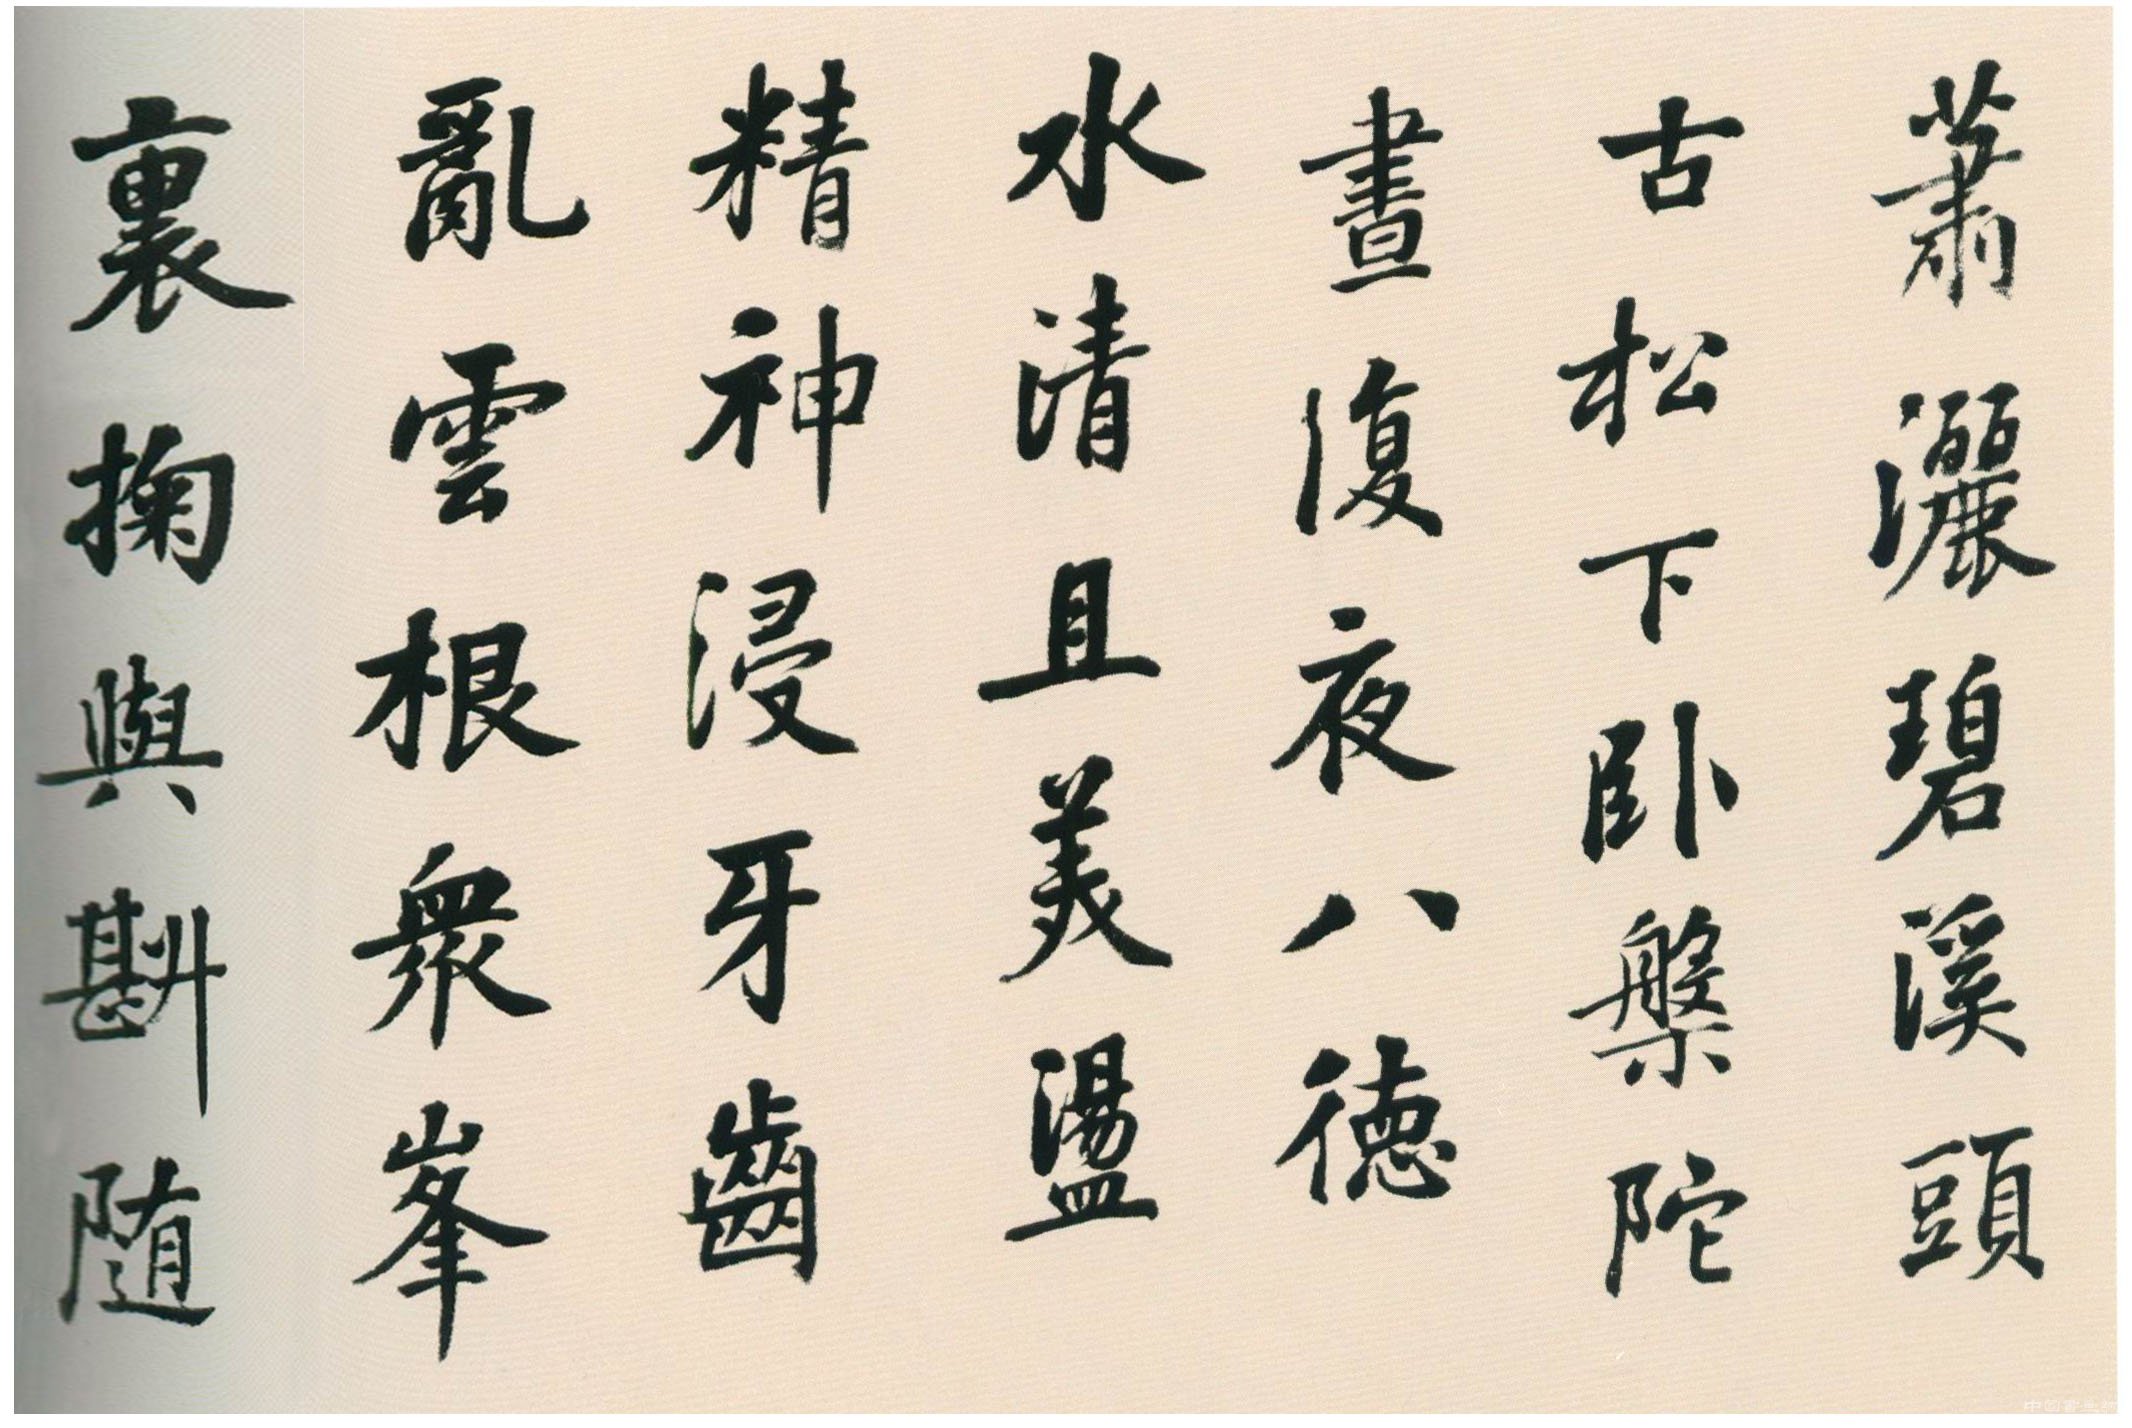 蕭灑碧溪頭
古松下卧槃陀
晝復夜八德
水清且美盪
精神浸牙齒
亂雲根衆峯
裏掬與斟随